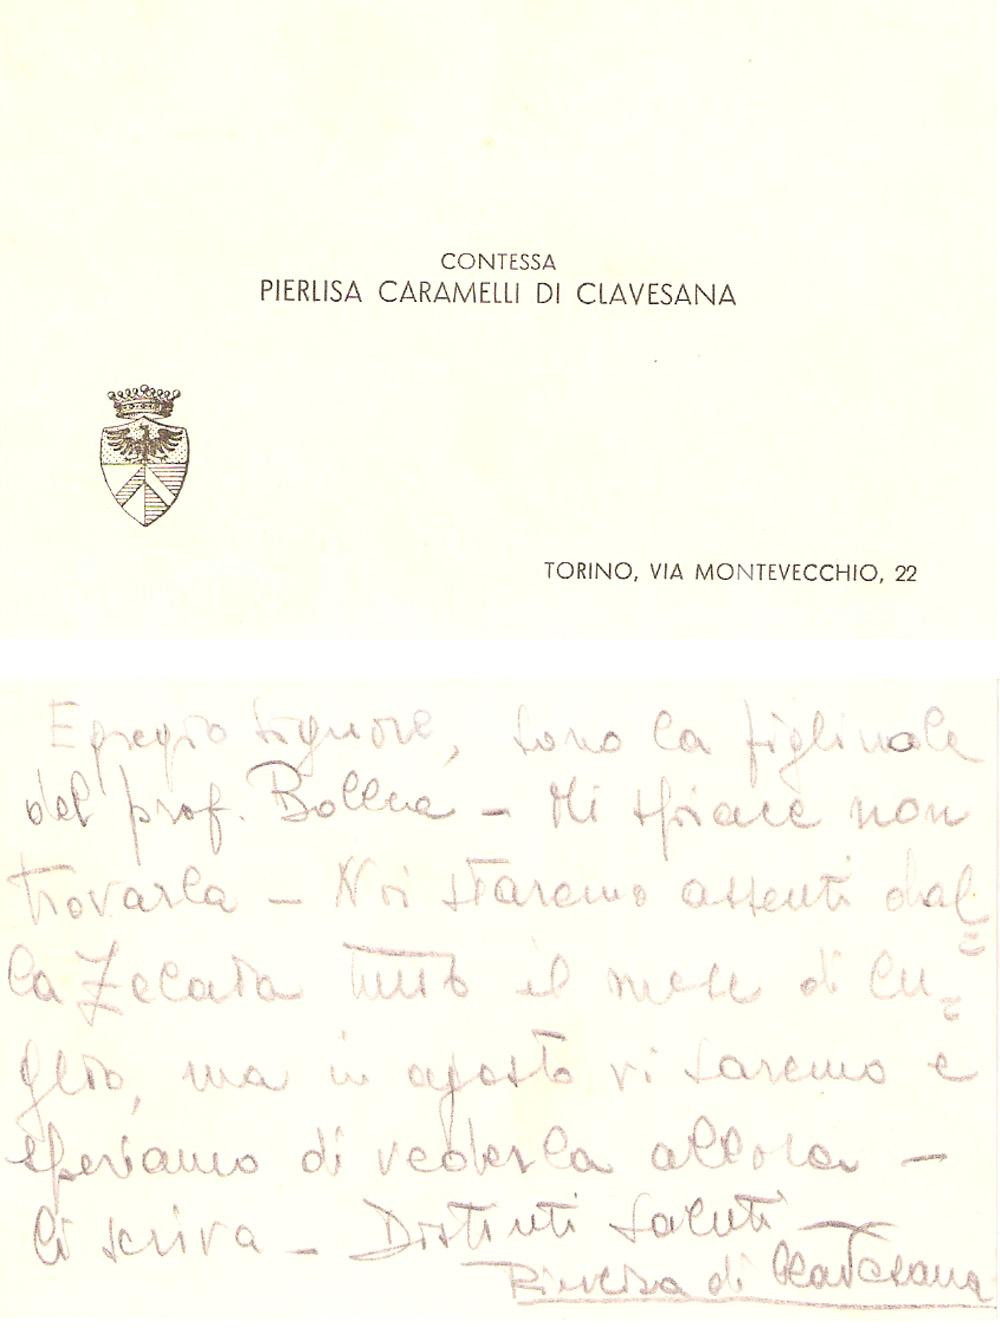 CONTESSA
PIERLISA CARAMELLI DI CLAVESANA
TORINO, VIA MONTEVECCHIO, 22
Egregio Signore, sono la figlinola
del prof. Bollea – Mi spiace non
trovarla – Noi staremo assenti dal=
la Zelata tutto il mese di lu=
glio, ma in agosto vi saremo e
speriamo di vederla allora –
Ci scriva – Distinti saluti –
Pierlisa di Clavesana